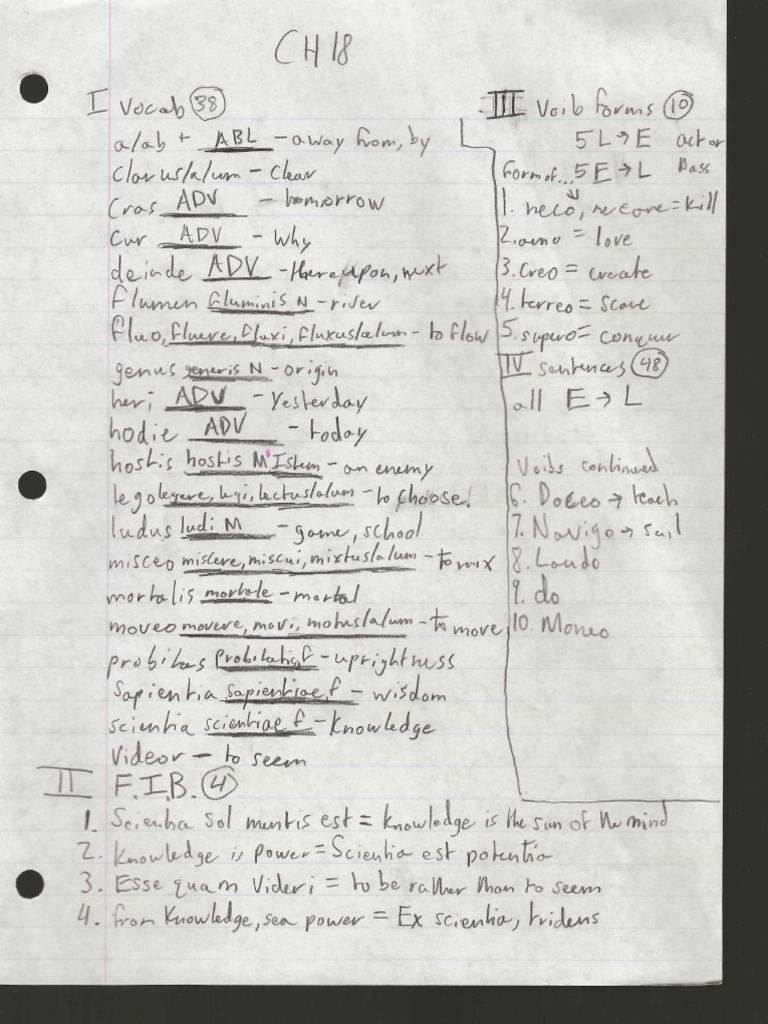 CH 18
I Vocab 38
a/ab + ABL - away from, by
Clarus/a/um - Clear
Cras ADV - tomorrow
Cur ADV - Why
deinde ADV - thereupon, next
flumen fluminis N - river
fluo, fluere, fluxi, fluxus/a/um - to flow
genus generis N - origin
heri ADV - Yesterday
hodie ADV - today
hostis hostis M - an enemy
lego legere, legi, lectus/a/um - to choose
ludus ludi M - game, school
misceo miscere, miscui, mixtus/a/um - to mix
mortalis mortale - mortal
moveo movere, movi, motus/a/um - to move
probitas Probitatis f - uprightness
Sapientia sapientiae f - wisdom
scientia scientiae f - Knowledge
Videor - to seem
II F.I.B. 4
1. Scientia Sol mentis est = knowledge is the sun of the mind
2. Knowledge is power = Scientia est potentia
3. Esse quam Videri = to be rather than to seem
4. from Knowledge, sea power = Ex scientia, tridens
III Verb forms 10
5 L → E act or
Form of... 5 E → L pass
1. neco, necare = Kill
2. amo = love
3. Creo = create
4. terreo = scare
5. supero = conquer
IV sentences 48
all E → L
Verbs continued
6. Doceo → teach
7. Navigo → sail
8. Laudo
9. do
10. Moneo